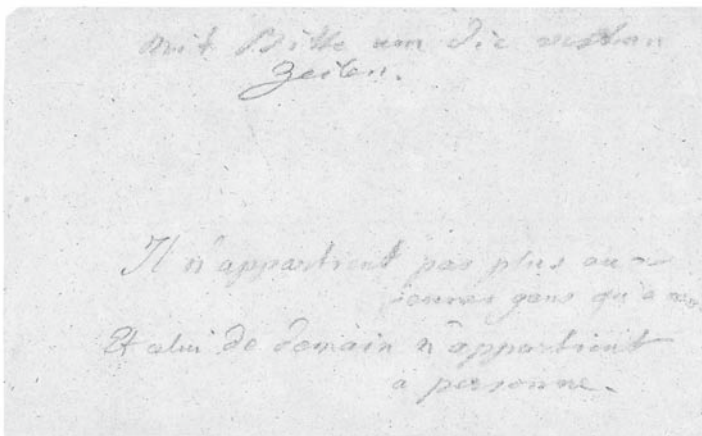 Mit Bitte um die ersten
Zeilen.
Il n'appartient pas plus aux
jeunes gens qu'a
Et celui de demain n'appartient
a personne.